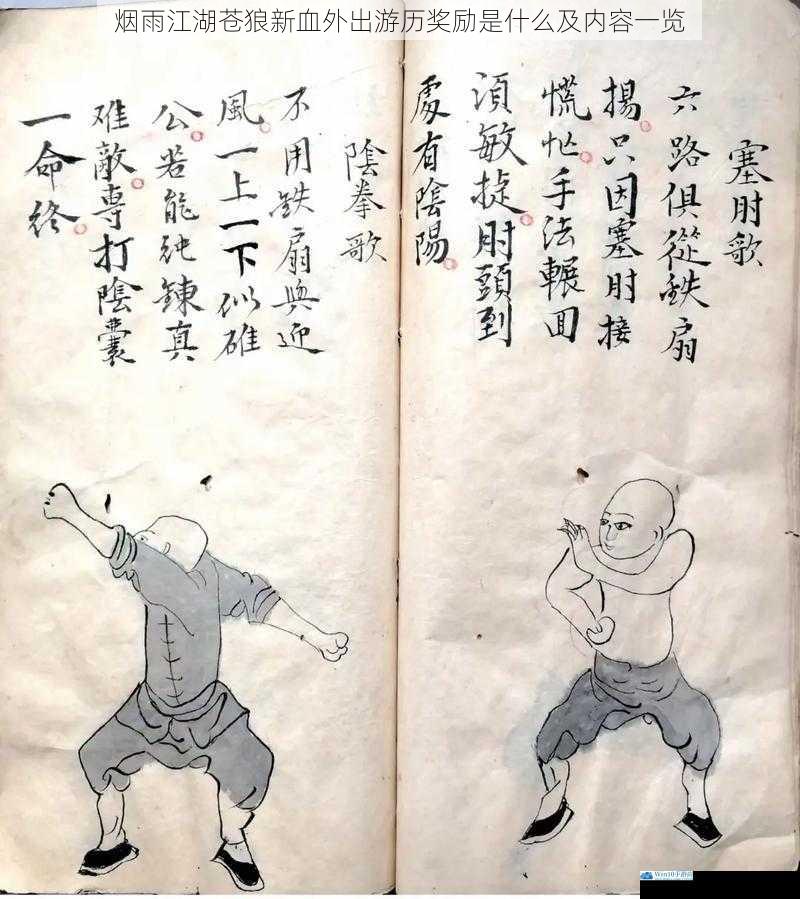 烟雨江湖苍狼新血外出游历奖励是什么及内容一览
塞肘歌
六路俱從鉄扇
揚只因塞肘接
慌忙手法輾回
須敏捷肘頭到
處有陰陽
陰拳歌
不用鉄扇與迎
風一上一下似碓
公若能純鍊真
难敵専打陰囊
一命终
Win10手游网